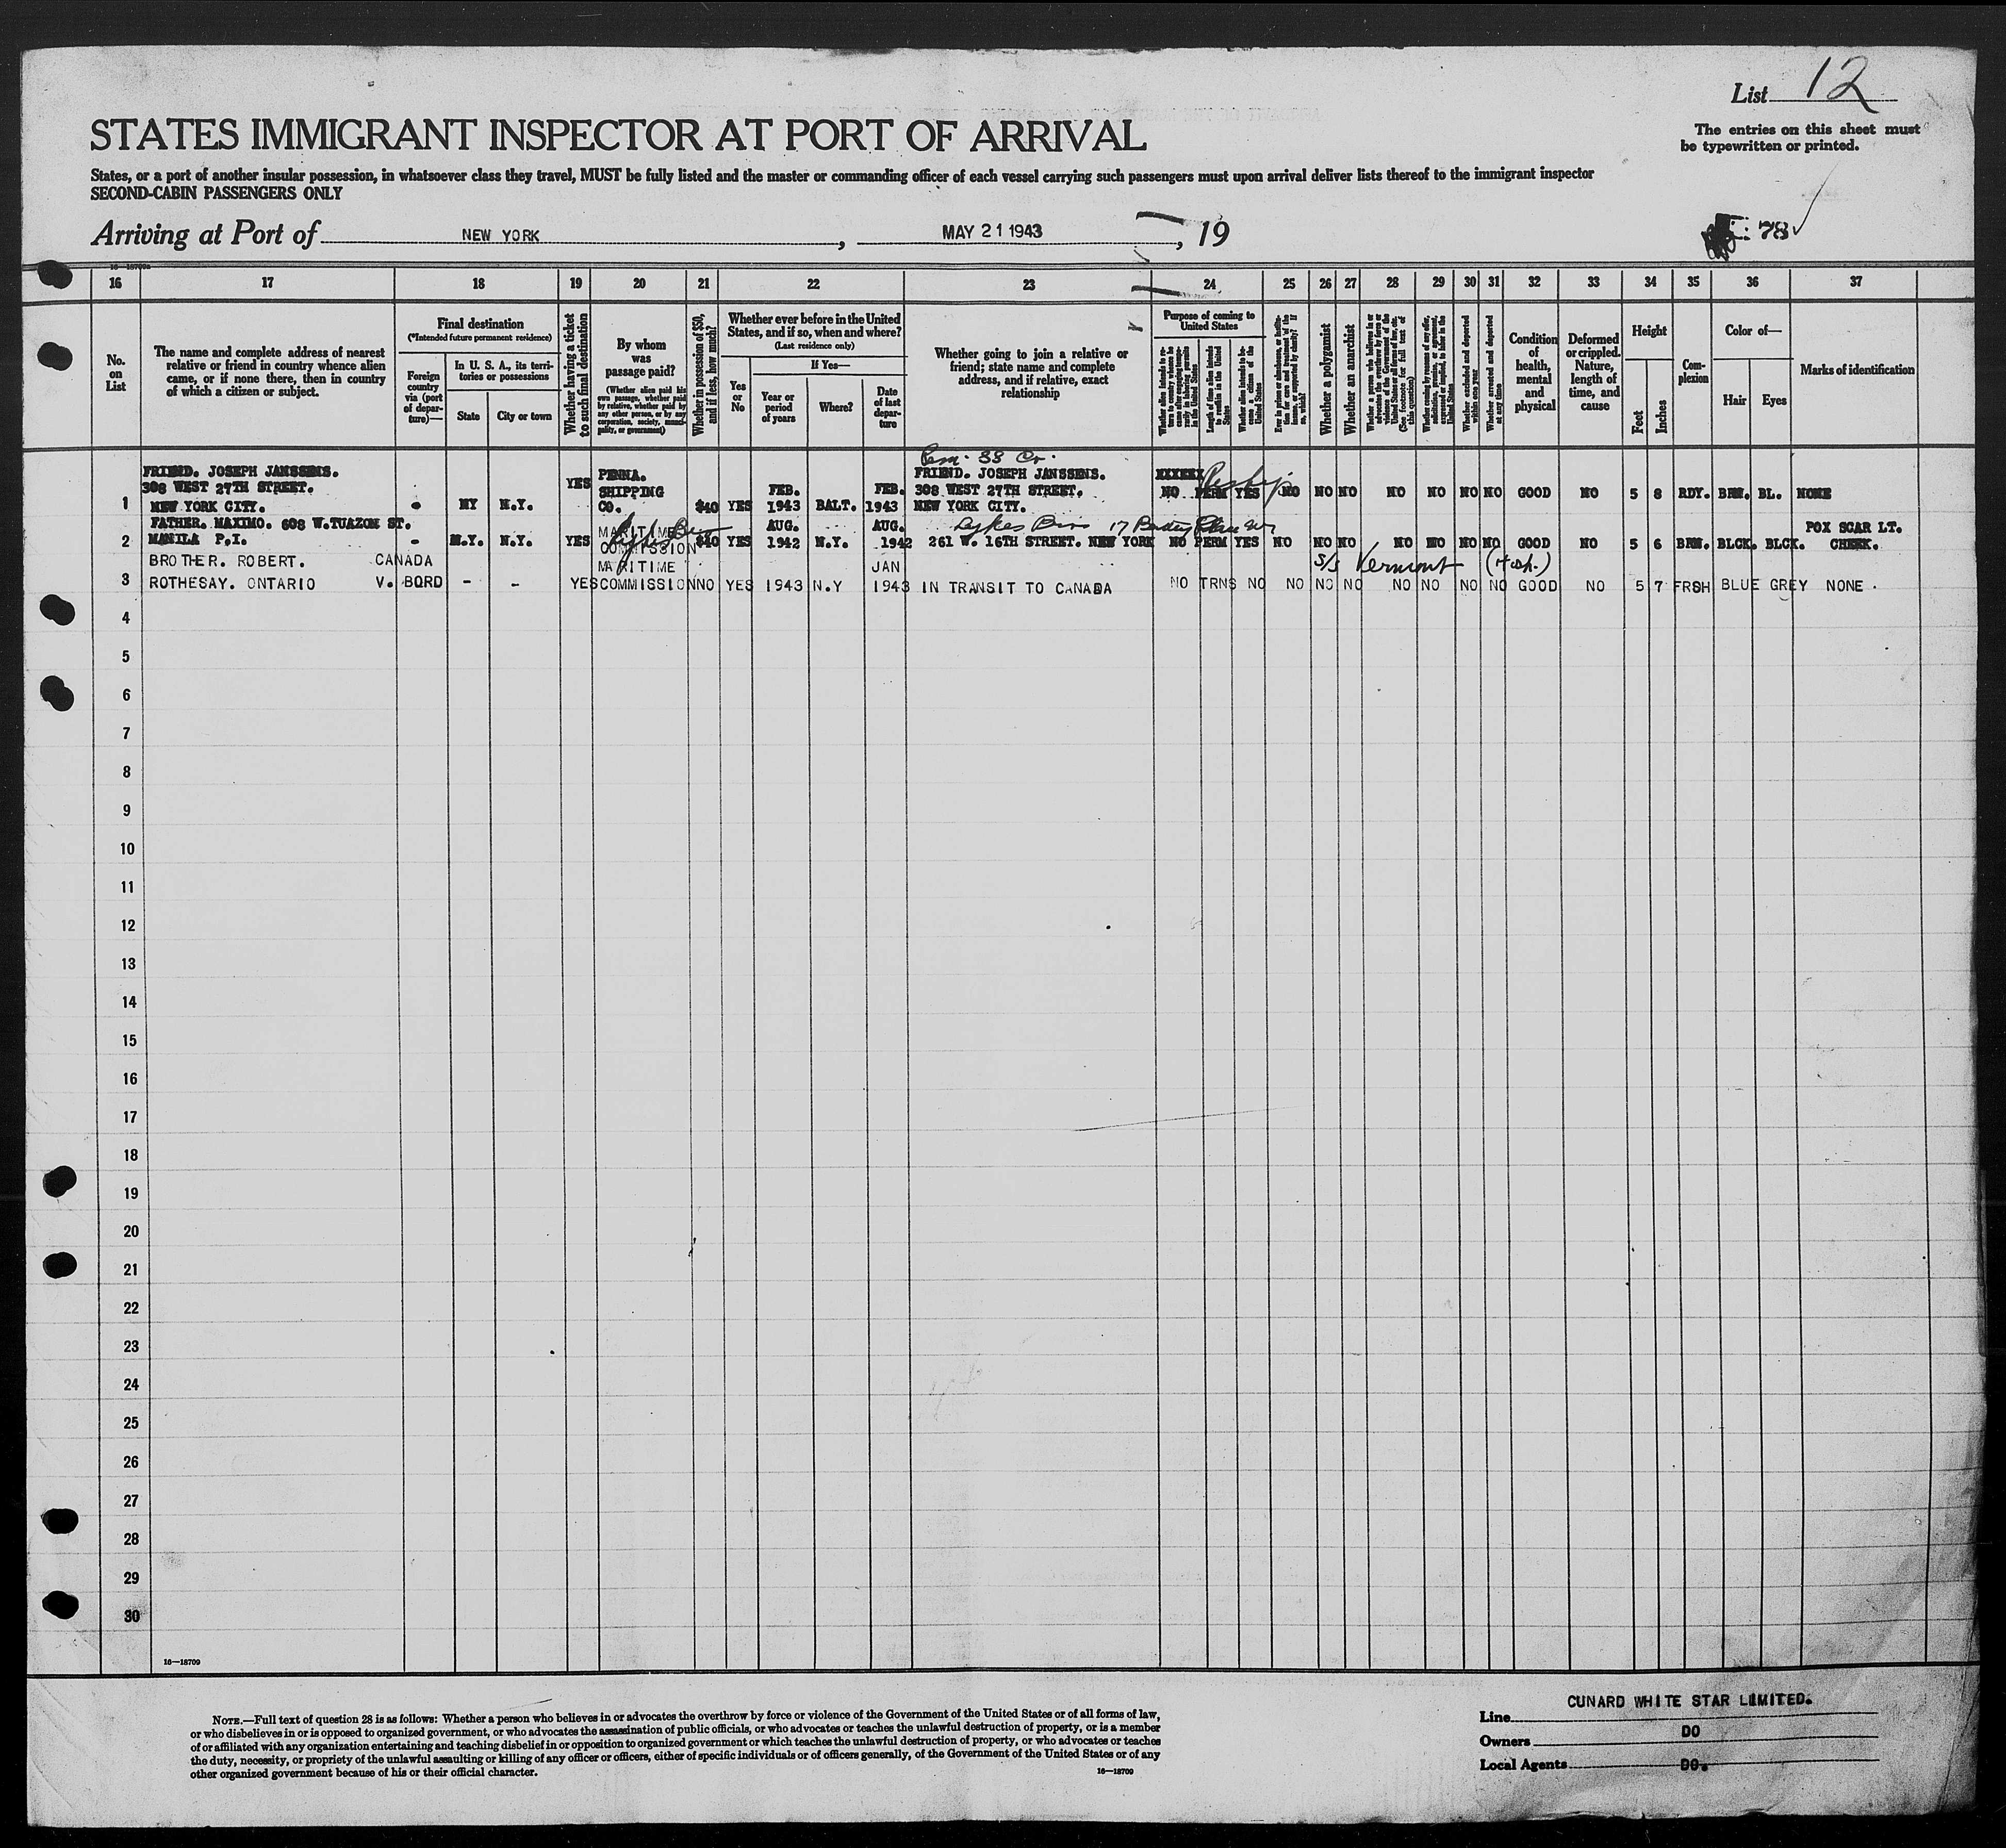 List 12
The entries on this sheet must
be typewritten or printed.
STATES IMMIGRANT INSPECTOR AT PORT OF ARRIVAL
States, or a port of another insular possession, in whatsoever class they travel, MUST be fully listed and the master or commanding officer of each vessel carrying such passengers must upon arrival deliver lists thereof to the immigrant inspector
SECOND-CABIN PASSENGERS ONLY
Arriving at Port of NEW YORK, MAY 21 1943, 19
78
16 17 18 19 20 21 22 23 24 25 26 27 28 29 30 31 32 33 34 35 36 37
No. on List
The name and complete address of nearest
relative or friend in country whence alien
came, or if none there, then in country
of which a citizen or subject.
Final destination
(*Intended future permanent residence)
Foreign country via (port of departure)—
In U. S. A., its territories or possessions
State
City or town
Whether having a ticket to such final destination
By whom was passage paid?
(Whether alien paid his own passage, whether paid by relative, whether paid by any other person, or by any corporation, society, municipality, or government)
Whether in possession of $50, and if less, how much?
Whether ever before in the United
States, and if so, when and where?
(Last residence only)
If Yes—
Yes or No
Year or period of years
Where?
Date of last departure
Whether going to join a relative or
friend; state name and complete
address, and if relative, exact
relationship
Purpose of coming to United States
Whether a polygamist
Whether an anarchist
Whether excluded and deported within one year
Whether arrested and deported at any time
Condition of health, mental and physical
Deformed or crippled. Nature, length of time, and cause
Height
Feet
Inches
Complexion
Color of—
Hair
Eyes
Marks of identification
FRIEND. JOSEPH JANSSENS. PENNA. FRIEND. JOSEPH JANSSENS. XXXXXX
308 WEST 27TH STREET. YES SHIPPING FEB. FEB. 308 WEST 27TH STREET.
1 NEW YORK CITY. - NY N.Y. CO. $40 YES 1943 BALT. 1943 NEW YORK CITY. NO PERM YES NO NO NO NO NO NO NO GOOD NO 5 8 RDY. BRN. BL. NONE
FATHER. MAXIMO. 608 W.TUAZON ST. MARITIME AUG. AUG. Lykes Bros 17 POX SCAR LT.
2 MANILA P.I. - N.Y. N.Y. YES COMMISSION $40 YES 1942 N.Y. 1942 261 W. 16TH STREET. NEW YORK NO PERM YES NO NO NO NO NO NO NO GOOD NO 5 6 BRN. BLCK. BLCK. CHEEK.
BROTHER. ROBERT. CANADA MARITIME JAN S/S Vermont
3 ROTHESAY. ONTARIO V. BORD - - YES COMMISSION NO YES 1943 N.Y 1943 IN TRANSIT TO CANADA NO TRNS NO NO NO NO NO NO NO NO GOOD NO 5 7 FRSH BLUE GREY NONE.
4
5
6
7
8
9
10
11
12
13
14
15
16
17
18
19
20
21
22
23
24
25
26
27
28
29
30
16—18709
NOTE.—Full text of question 28 is as follows: Whether a person who believes in or advocates the overthrow by force or violence of the Government of the United States or of all forms of law,
or who disbelieves in or is opposed to organized government, or who advocates the assassination of public officials, or who advocates or teaches the unlawful destruction of property, or is a member
of or affiliated with any organization entertaining and teaching disbelief in or opposition to organized government or which teaches the unlawful destruction of property, or who advocates or teaches
the duty, necessity, or propriety of the unlawful assaulting or killing of any officer or officers, either of specific individuals or of officers generally, of the Government of the United States or of any
other organized government because of his or their official character.
16—18709
Line CUNARD WHITE STAR LIMITED.
Owners DO
Local Agents DO.